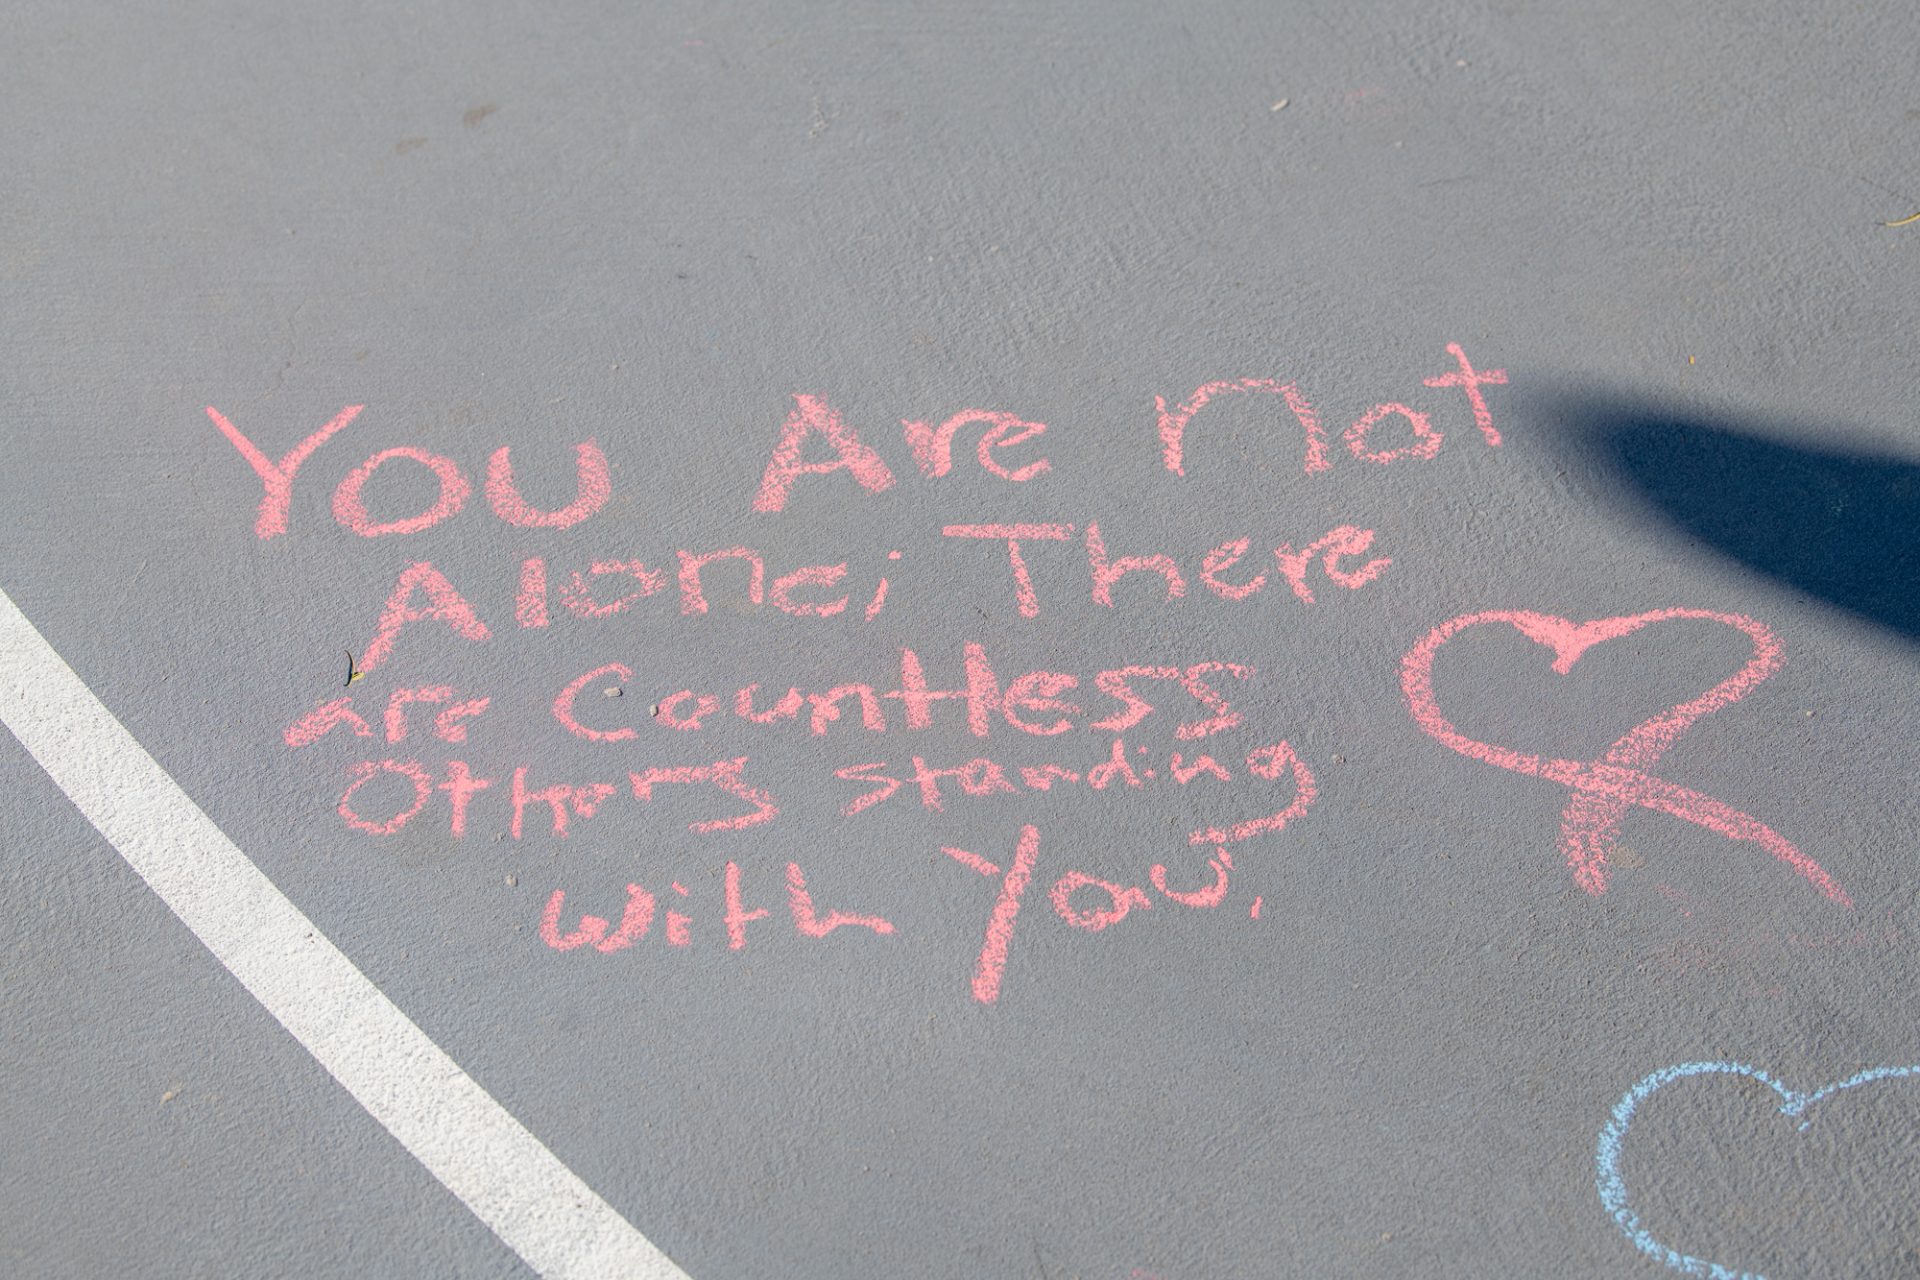 You Are not
Alone; There
are Countless
Others standing
with You.